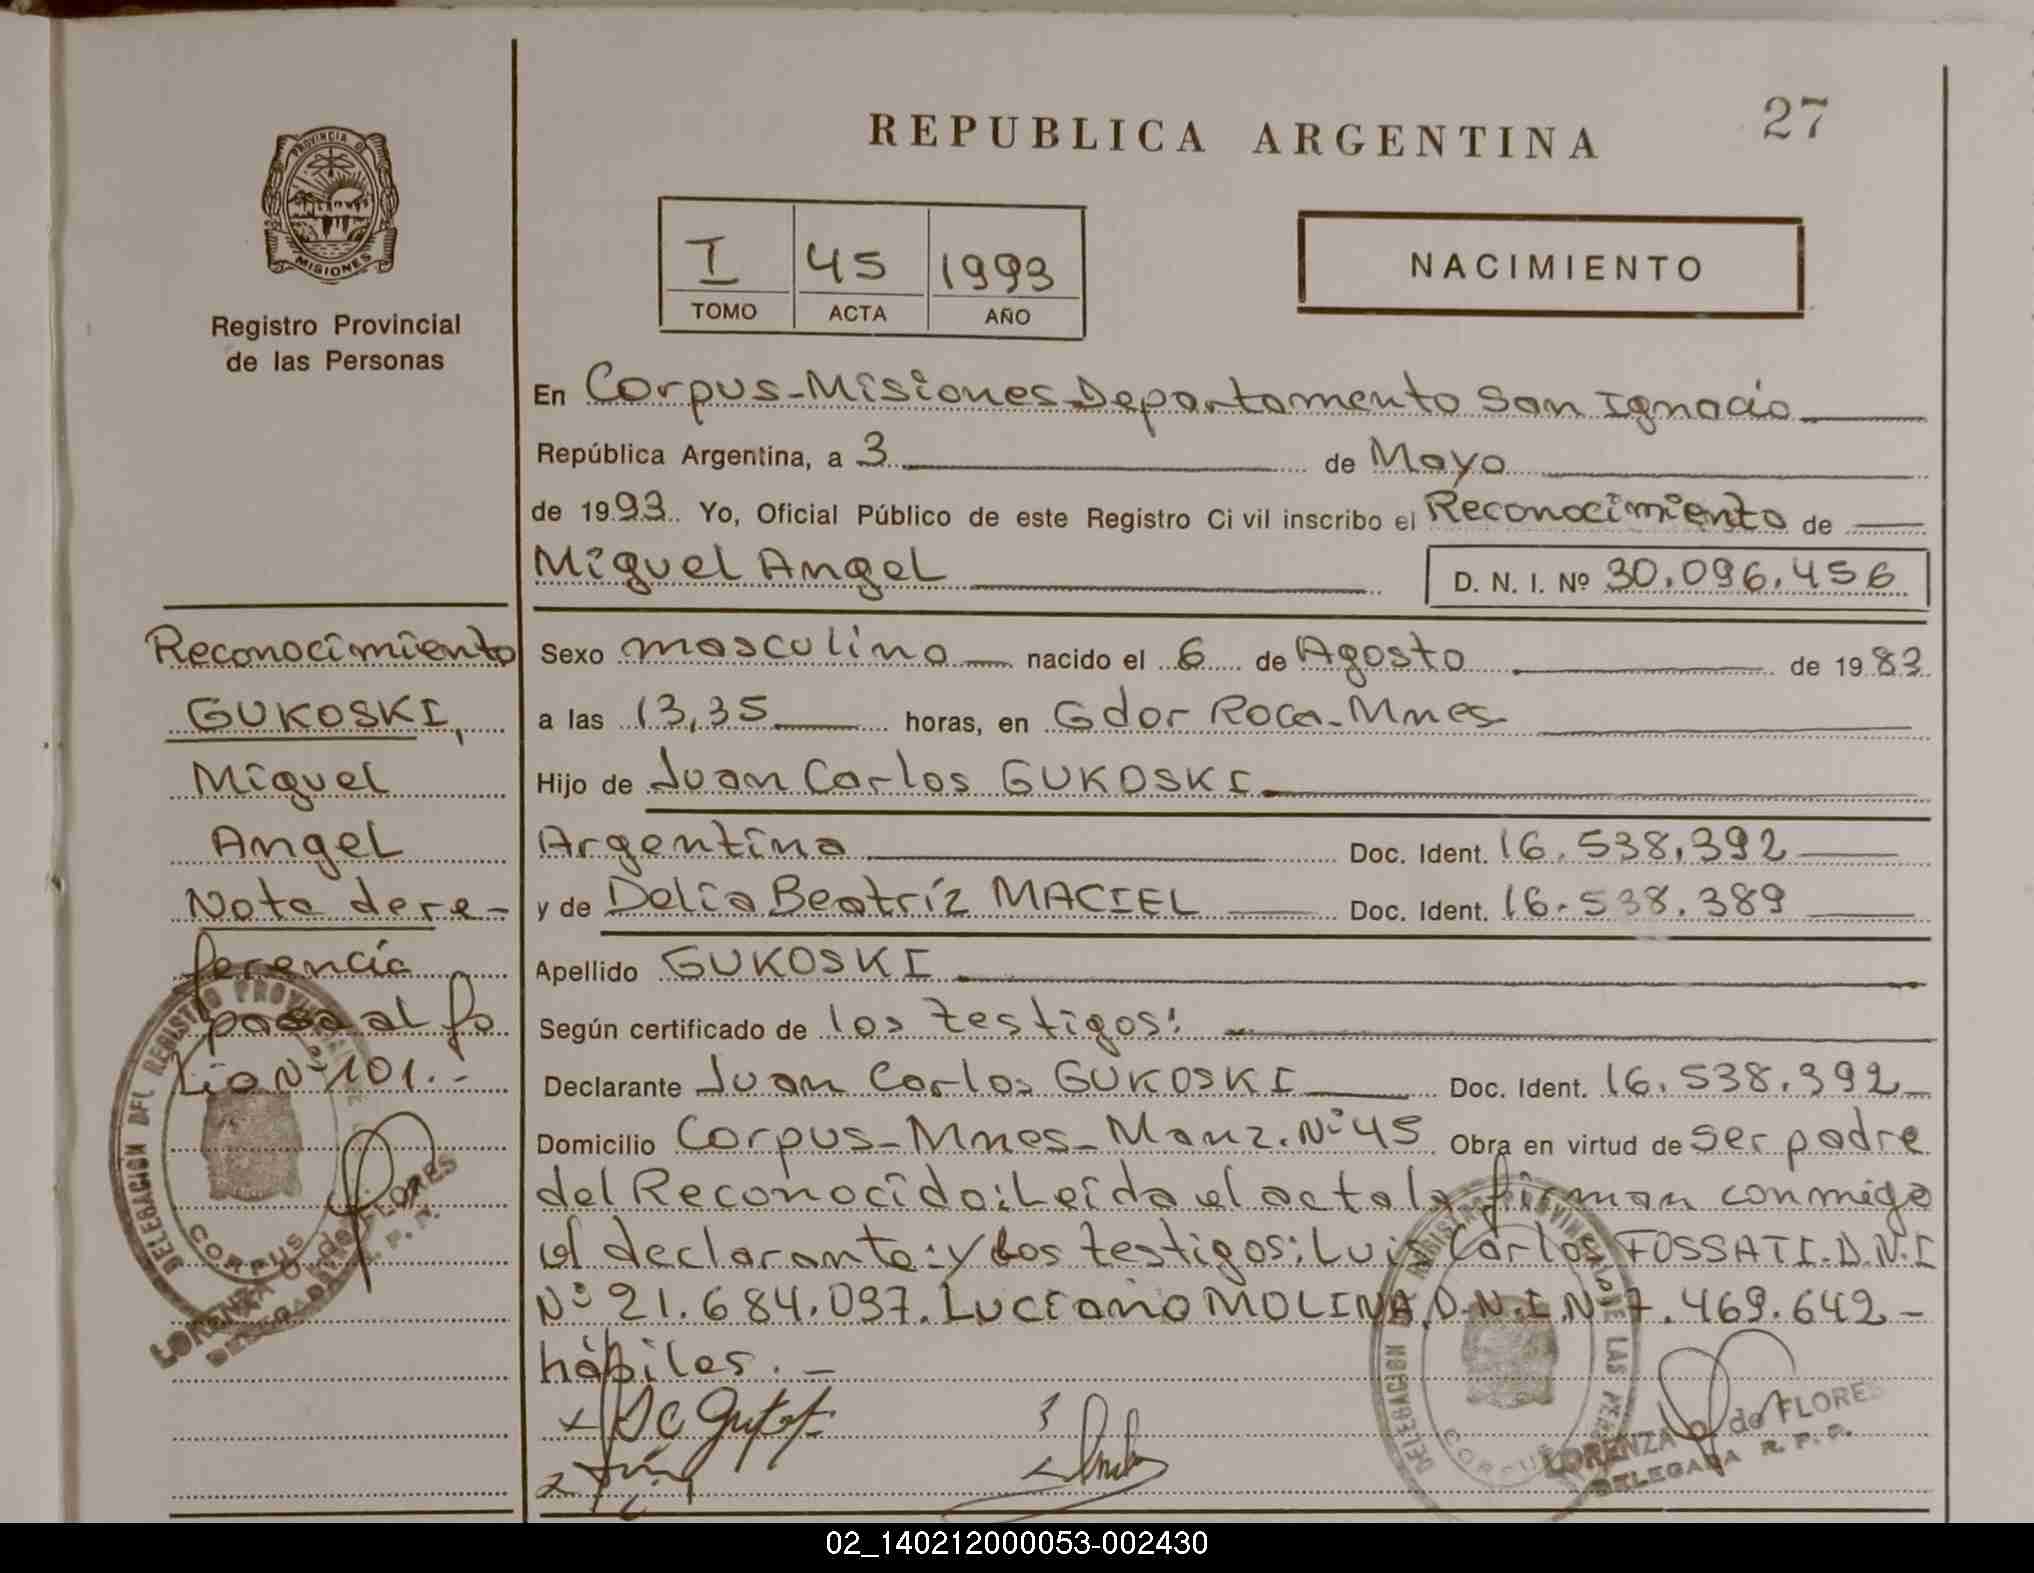 REPUBLICA ARGENTINA
27
PROVINCIA D
MISIONES
Registro Provincial
de las Personas
I 45 1993
TOMO ACTA AÑO
NACIMIENTO
En Corpus-Misiones Departamento San Ignacio
República Argentina, a 3 de Mayo
de 1993. Yo, Oficial Público de este Registro Civil inscribo el Reconocimiento de
Miguel Angel D. N. I. Nº 30.096.456
Sexo masculino nacido el 6 de Agosto de 1983
a las 13,35 horas, en Gdor Roca-Mnes
Hijo de Juan Carlos GUKOSKI
Argentina Doc. Ident. 16.538.392
y de Delia Beatríz MACIEL Doc. Ident. 16.538.389
Apellido GUKOSKI
Según certificado de los testigos:
Declarante Juan Carlos GUKOSKI Doc. Ident. 16.538.392
Domicilio Corpus-Mnes-Manz.Nº45 Obra en virtud de ser padre
del Reconocido: Leída el acta la firman conmigo
el declarante: y los testigos: Luis Carlos FOSSATI.D.N.I
Nº 21.684.097. Luciano MOLINA.D.N.I.Nº 7.469.642-
hábiles.-
Reconocimiento
GUKOSKI,
Miguel
Angel
Nota de re-
ferencia
pasa al fo
lio Nº 101.-
DELEGACION DEL REGISTRO PROVINCIAL
CORPUS
LORENZA O. de FLORES
DELEGADA R. P. P.
DELEGACION REGISTRO PROVINCIAL DE LAS PERS
CORPUS
LORENZA O. de FLORES
DELEGADA R. P. P.
02_140212000053-002430